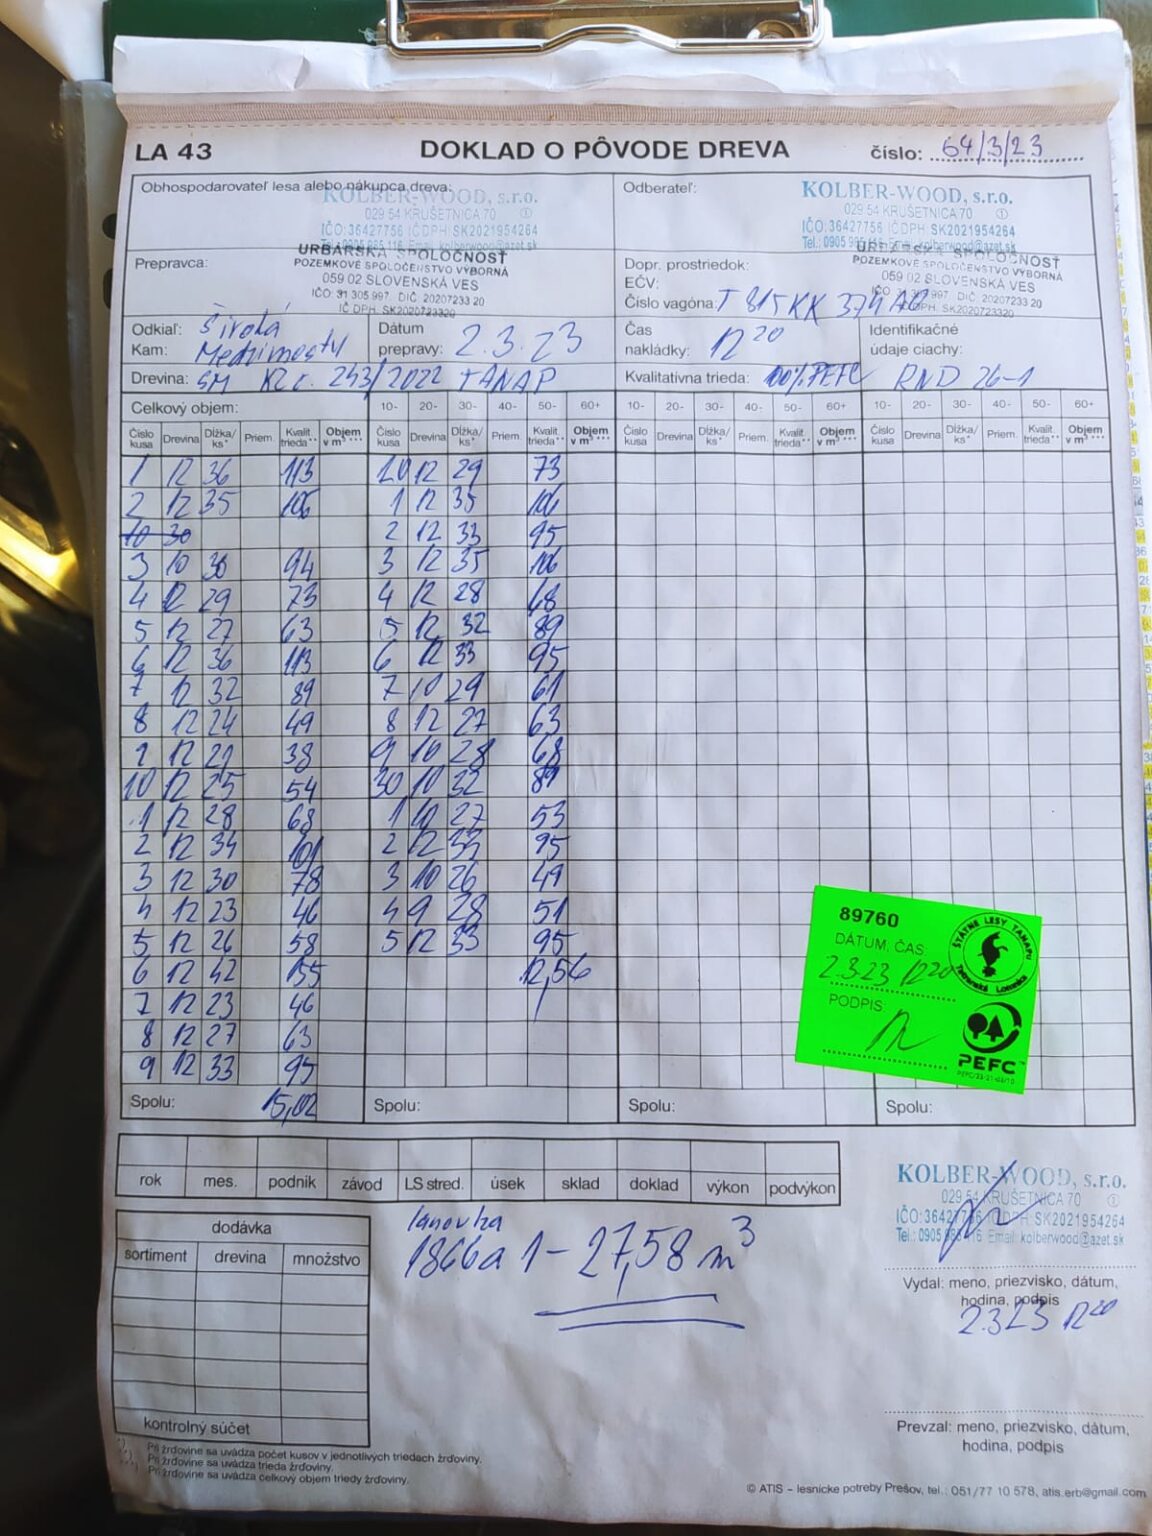 LA 43 DOKLAD O PÔVODE DREVA číslo: 64/3/23
Obhospodarovateľ lesa alebo nákupca dreva:
KOLBER-WOOD, s.r.o.
029 54 KRUŠETNICA 70
IČO:36427756 IČ DPH: SK2021954264
Email: kolberwood@azet.sk
Odberateľ:
KOLBER-WOOD, s.r.o.
029 54 KRUŠETNICA 70
IČO:36427756 IČ DPH: SK2021954264
Tel.: 0905 Email: kolberwood@azet.sk
Prepravca:
URBÁRSKA SPOLOČNOSŤ
POZEMKOVÉ SPOLOČENSTVO VÝBORNÁ
059 02 SLOVENSKÁ VES
IČO: 31 305 997 DIČ 20207233 20
IČ DPH: SK2020723320
Dopr. prostriedok:
EČV:
Číslo vagóna:
URBÁRSKA SPOLOČNOSŤ
POZEMKOVÉ SPOLOČENSTVO VÝBORNÁ
059 02 SLOVENSKÁ VES
DIČ 20207233 20
DPH: SK2020723320
Odkiaľ: Široká
Kam: Medzimosty
Dátum prepravy: 2.3.23
Čas nakládky: 12 20
Identifikačné údaje ciachy:
Drevina: SM 243/2022 TANAP
Kvalitatívna trieda: 100% PEFC RND 26-1
Celkový objem: 10- 20- 30- 40- 50- 60+ 10- 20- 30- 40- 50- 60+ 10- 20- 30- 40- 50- 60+
Číslo kusa Drevina Dĺžka/ ks* Priem. Kvalit. trieda** Objem v m³*** Číslo kusa Drevina Dĺžka/ ks* Priem. Kvalit. trieda** Objem v m³*** Číslo kusa Drevina Dĺžka/ ks* Priem. Kvalit. trieda** Objem v m³*** Číslo kusa Drevina Dĺžka/ ks* Priem. Kvalit. trieda** Objem v m³***
1 12 36 113 20 12 29 73
2 12 35 106 1 12 35 106
10 30 2 12 33 95
3 10 30 94 3 12 35 106
4 12 29 73 4 12 28 68
5 12 27 63 5 12 32 89
6 12 36 113 6 12 33 95
7 12 32 89 7 10 29 61
8 12 24 49 8 12 27 63
9 12 38 9 10 28 68
10 12 25 54 30 10 32 89
1 12 28 68 1 10 27 53
2 12 34 101 2 12 33 95
3 12 30 78 3 10 26 49
4 12 23 46 4 9 28 51
5 12 26 58 5 12 33 95
6 12 42 155 12,56
7 12 23 46
8 12 27 63
9 12 33 95
Spolu: 15,02 Spolu: Spolu: Spolu:
89760
DÁTUM, ČAS:
2.3.23 12 20
PODPIS:
ŠTÁTNE LESY TANAPu
Tatranská Lomnica
PEFC
rok mes. podnik závod LS stred. úsek sklad doklad výkon podvýkon
dodávka
sortiment drevina množstvo
kontrolný súčet
1866a 1 - 27,58 m³
KOLBER-WOOD, s.r.o.
029 54 KRUŠETNICA 70
IČO:36427756 IČ DPH: SK2021954264
Tel.: 0905 Email: kolberwood@azet.sk
Vydal: meno, priezvisko, dátum,
hodina, podpis
2.3.23 12 20
Prevzal: meno, priezvisko, dátum,
hodina, podpis
Pri žrďovine sa uvádza počet kusov v jednotlivých triedach žrďoviny.
Pri žrďovine sa uvádza trieda žrďoviny.
Pri žrďovine sa uvádza celkový objem triedy žrďoviny.
© ATIS – lesnícke potreby Prešov, tel.: 051/77 10 578, atis.erb@gmail.com